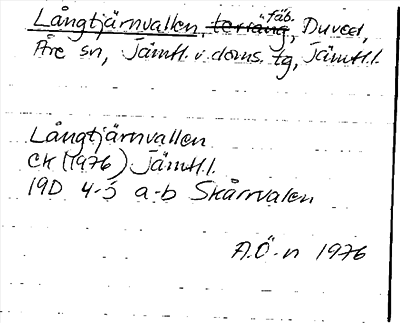 Långtjärnvallen, terräng, fäb. Duved,
Åre sn, Jämtl. v. doms. tg, Jämtl. l.
Långtjärnvallen
CK (1976) Jämtl. l.
19D 4-5 a-b Skårrvalen
A.Ö-n 1976